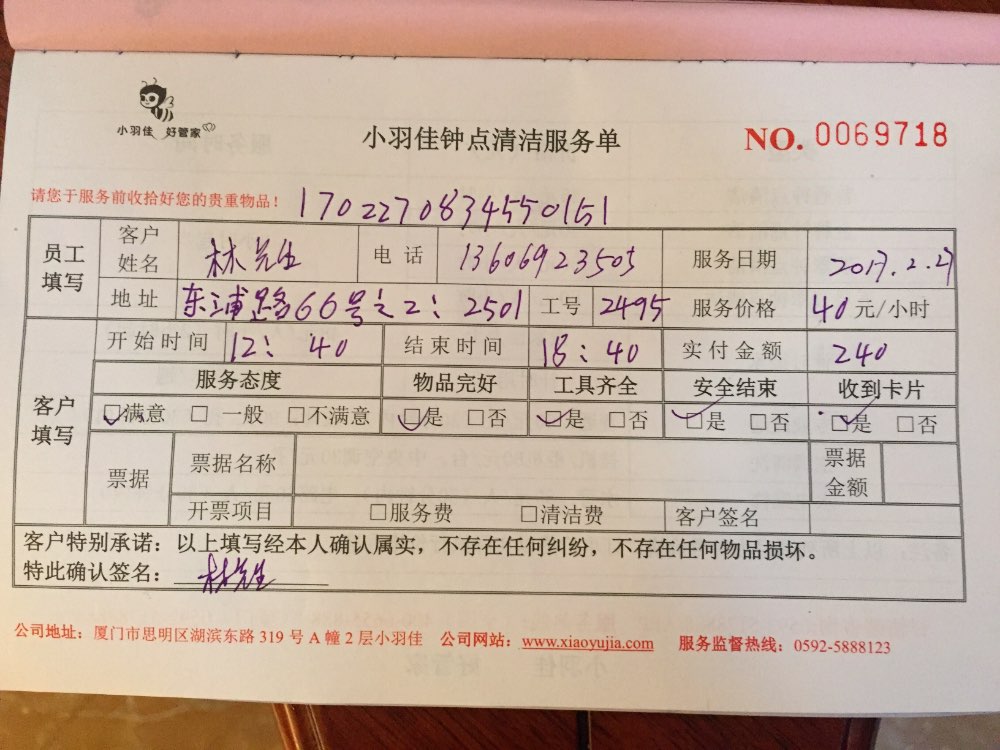 小羽佳 好管家
小羽佳钟点清洁服务单
NO. 0069718
请您于服务前收拾好您的贵重物品！ 1702270834550151
员工填写 客户姓名 林先生 电话 13606923505 服务日期 2017.2.27
地址 东浦路66号之2：2501 工号 2495 服务价格 40元/小时
客户填写 开始时间 12：40 结束时间 18：40 实付金额 240
服务态度 物品完好 工具齐全 安全结束 收到卡片
☑满意 □一般 □不满意 ☑是 □否 ☑是 □否 ☑是 □否 ☑是 □否
票据 票据名称 票据金额
开票项目 □服务费 □清洁费 客户签名
客户特别承诺：以上填写经本人确认属实，不存在任何纠纷，不存在任何物品损坏。
特此确认签名：林先生
公司地址：厦门市思明区湖滨东路319号A幢2层小羽佳 公司网站：www.xiaoyujia.com 服务监督热线：0592-5888123